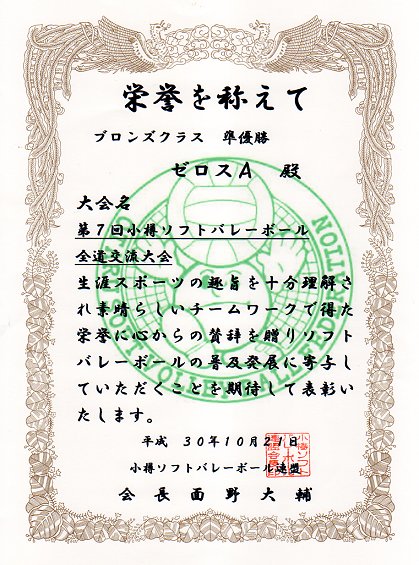 栄誉を称えて
ブロンズクラス 準優勝
ゼロスA 殿
大会名
第7回小樽ソフトバレーボール
全道交流大会
生涯スポーツの趣旨を十分理解さ
れ素晴らしいチームワークで得た
栄誉に心からの賛辞を贈りソフト
バレーボールの普及発展に寄与し
ていただくことを期待して表彰い
たします。
平成 30年10月21日
小樽ソフトバレーボール連盟
会長 面野大輔